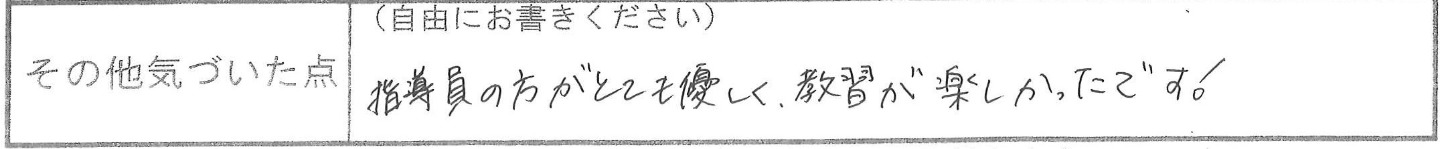 (自由にお書きください)
その他気づいた点
指導員の方がとても優しく、教習が楽しかったです!